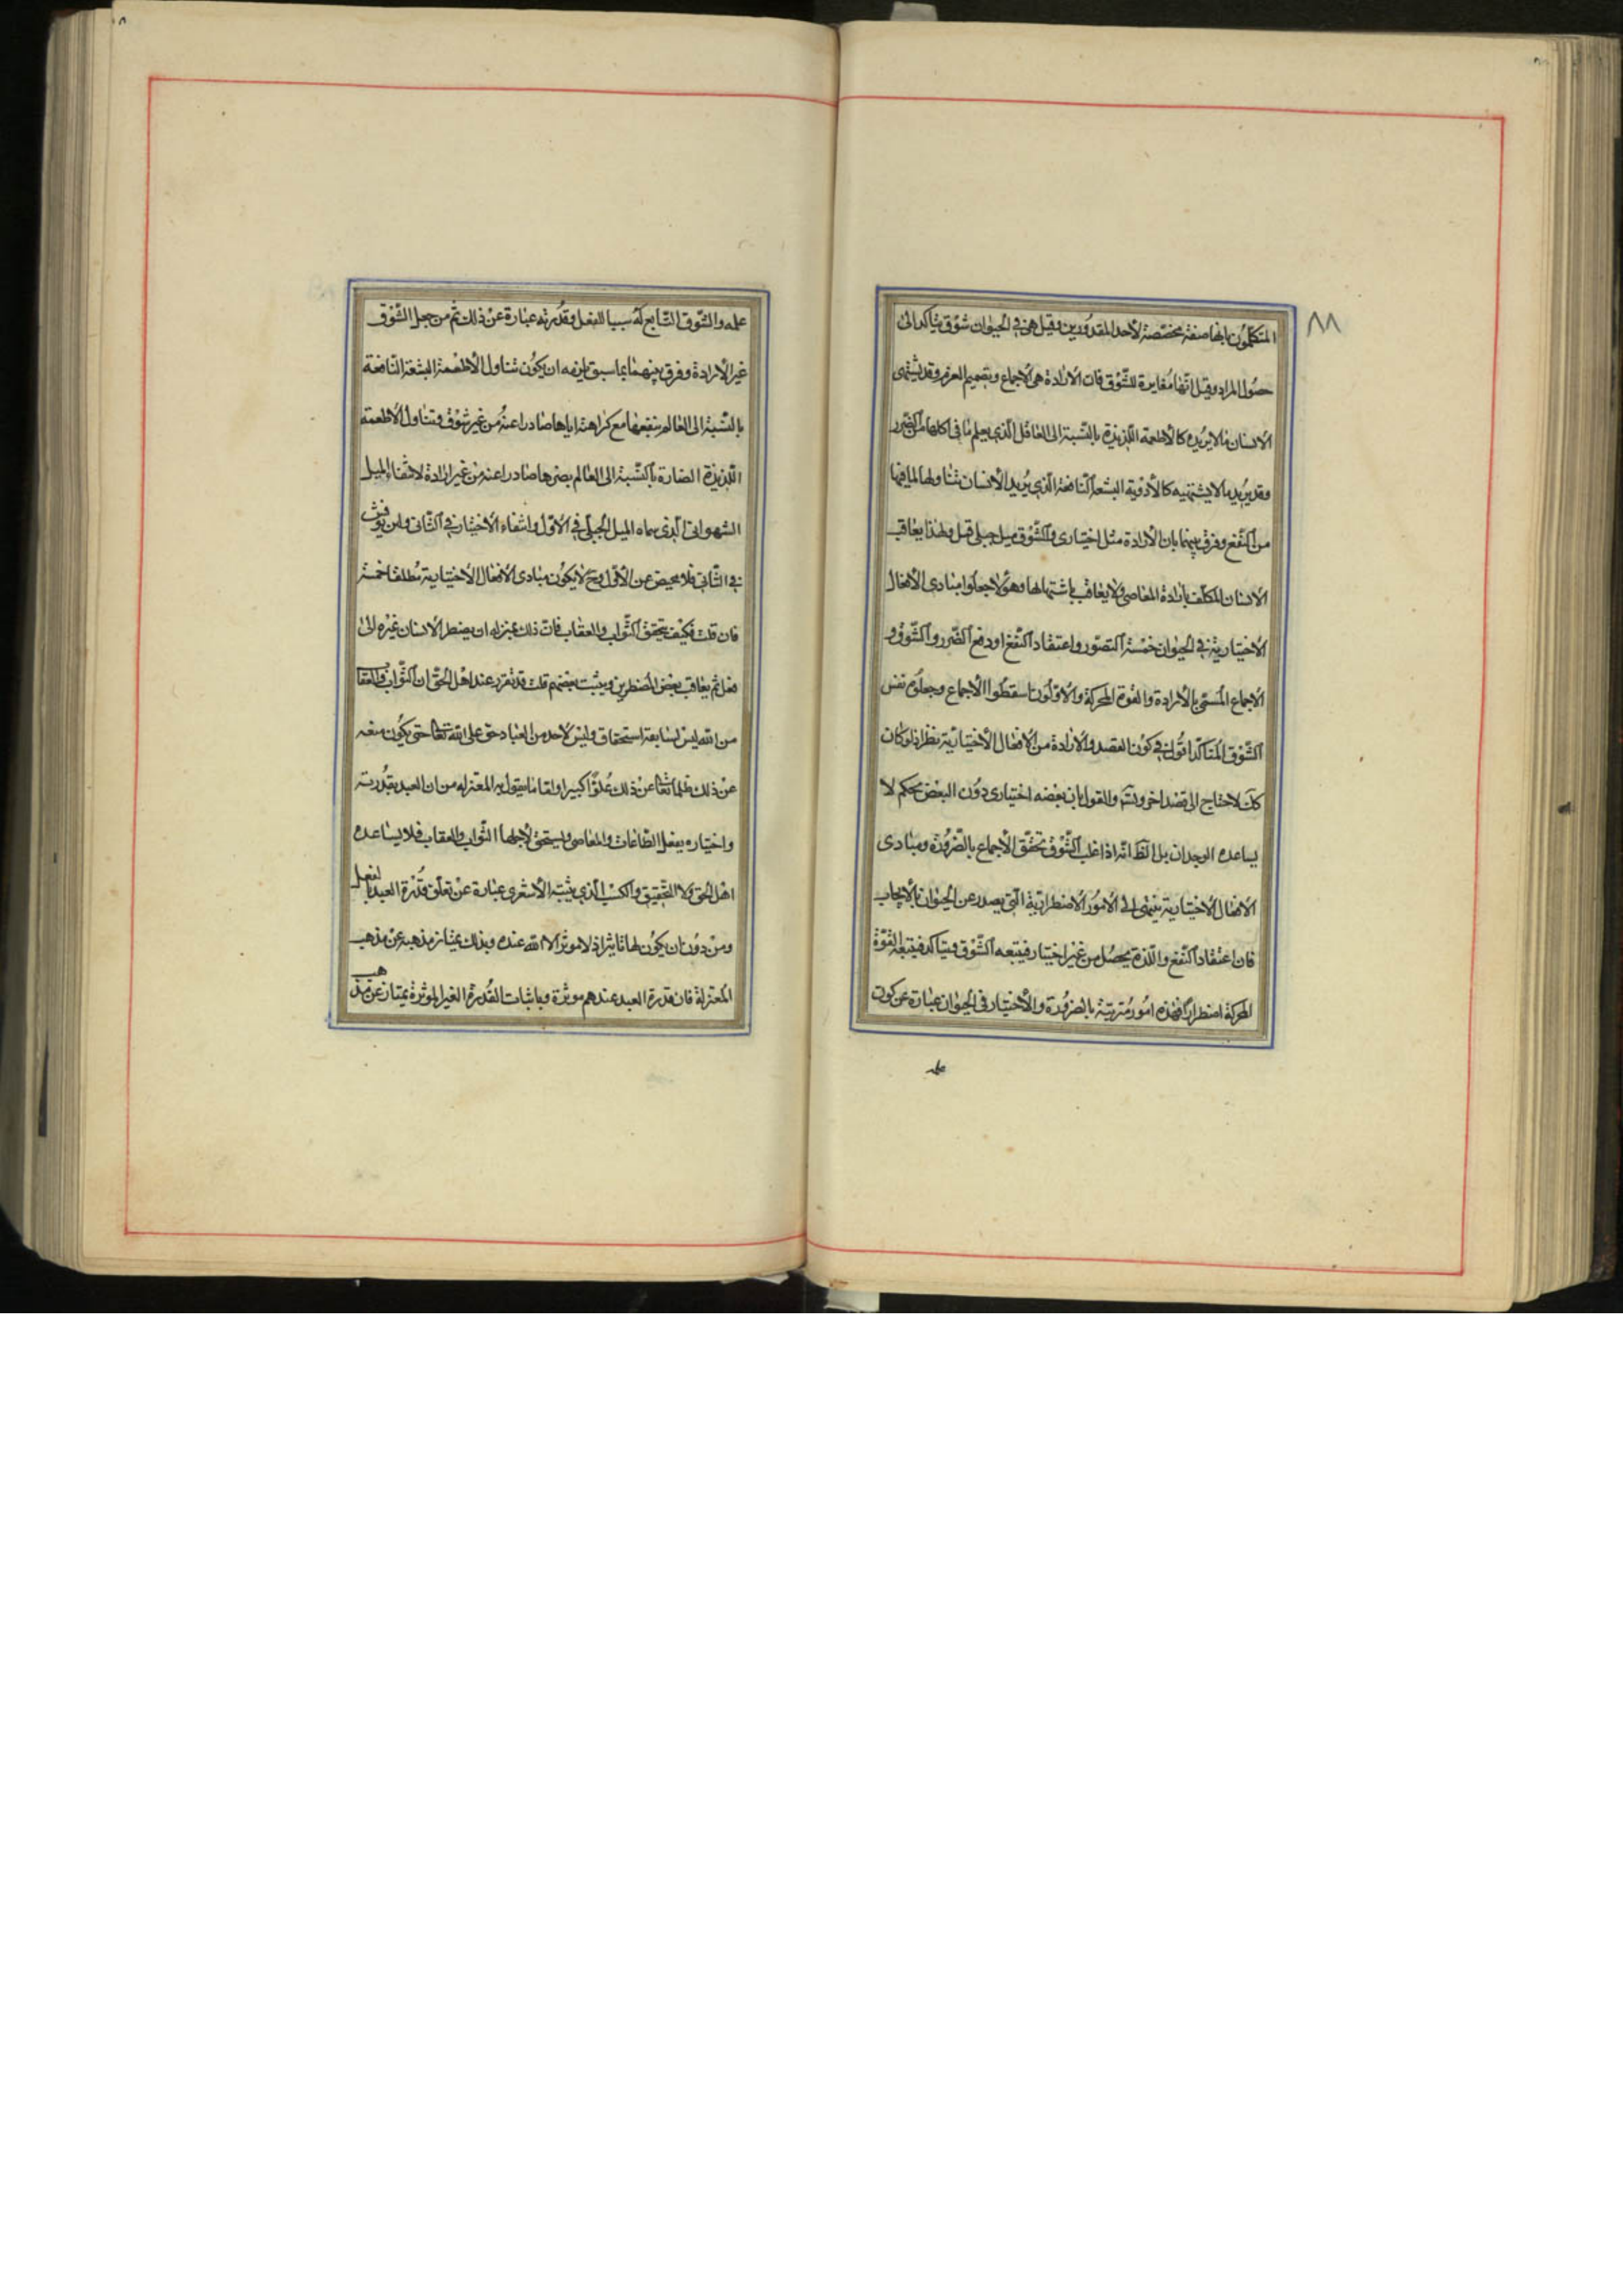 ٨٨
المتكلمون بانها صفة مخصصة لأحد المقدورين وقيل هى فى الحيوان شوق متاكد الى
حصول المراد وقيل انّها مُغايرة للشّوق فانّ الارادة هى الاجماع وتصميم العزم وقد يشتهى
الانسان ما لا يريده كالأطعمة اللّذيذة بالنّسبة الى العاقل الّذى يعلم ما فى اكلها من الضّرر
وقد يريد ما لا يشتهيه كالأدوية البشعة النّافعة الّذى يريد الأنسان تناولها لما فيها
من النّفع وفرق بينهما بان الأرادة ميل اختيارى والشّوق ميل جبلى قيل ولهذا يعاقب
الانسان المكلّف بارادة المعاصى ولا يعاقب باشتهائها وهؤلاء جعلوا مبادى الأفعال
الاختيارية فى الحيوان خمسة التصوّر واعتقاد النّفع او دفع الضّرر والشّوق و
الاجماع المسمّى بالأرادة والقوة المحركة والاوّلون اسقطوا الاجماع وجعلوه نفس
الشّوق المتاكّد اقول فى كون القصد والارادة من الافعال الأختياريّة نظر اذ لو كان
كك لاحتاج الى قصد اخر ويتسم والقول بان بعضه اختيارى دون البعض تحكم لا
يساعده الوجدان بل الظ انّه اذا غلب الشّوق تحقّق الأجماع بالضّرورة ومبادى
الافعال الاختيارية ينتهى الى الامور الاضطراريّة الّتى يصدر عن الحيوان بالأيجاب
فان اعتقاد النّفع واللّذة يحصل من غير اختيار فيتبعه الشّوق فيتاكد فيتبعه القوّة
المحركة اضطرارا فهذه امور مترتبة بالضرورة والأختيار فى الحيوان عبارة عن كون
علمه
علمه والشّوق التّابع له سببا للفعل وقدرته عبارة عن ذلك ثم من جعل الشّوق
غير الأرادة وفرق بينهما بما سبق يلزمه ان يكون تناول الأطعمة البشعة النّافعة
بالنّسبة الى العالم بنفعها مع كراهته اياها صادرا عنه من غير شوق وتناول الأطعمة
اللّذيذة الضارة بالنّسبة الى العالم بضرها صادرا عنه من غير ارادة لانتفاء الميل
الشهوانى الّذى سماه الميل الجبلّى فى الاوّل وانتفاء الأختيار فى الثّانى ولئن نوقش
فى الثّانى فلا محيص عن الأوّل وح لا يكون مبادى الافعال الاختيارية مطلقا خمسة
فان قلت فكيف يتحقق الثّواب والعقاب فانّ ذلك بمنزلة ان يضطر الانسان غيره الى
فعل ثم يعاقب بعض المضطرين ويثيب بعضهم قلت قد تقرر عند اهل الحقّ ان الثّواب والعقاب
من الله ليس لسابقة استحقاق وليس لأحد من العباد حق على الله تعالى حتى يكون منعه
عن ذلك ظلما تعالى عن ذلك علوّا كبيرا وامّا ما يقول به المعتزله من ان العبد بقدرته
واختياره يفعل الطّاعات والمعاصى ويستحق لأجلها الثّواب والعقاب فلا يساعده
اهل الحق ولا التحقيق والكسب الّذى يثبته الأشعرى عبارة عن تعلّق قدرة العبد بالفعل
ومن دون ان يكون لها تاثير اذ لا موثّر الا الله عنده وبذلك يمتاز مذهبه عن مذهب
المعتزلة فان قدرة العبد عندهم موثرة وباثبات القدرة الغير الموثرة يمتاز عن مذهب